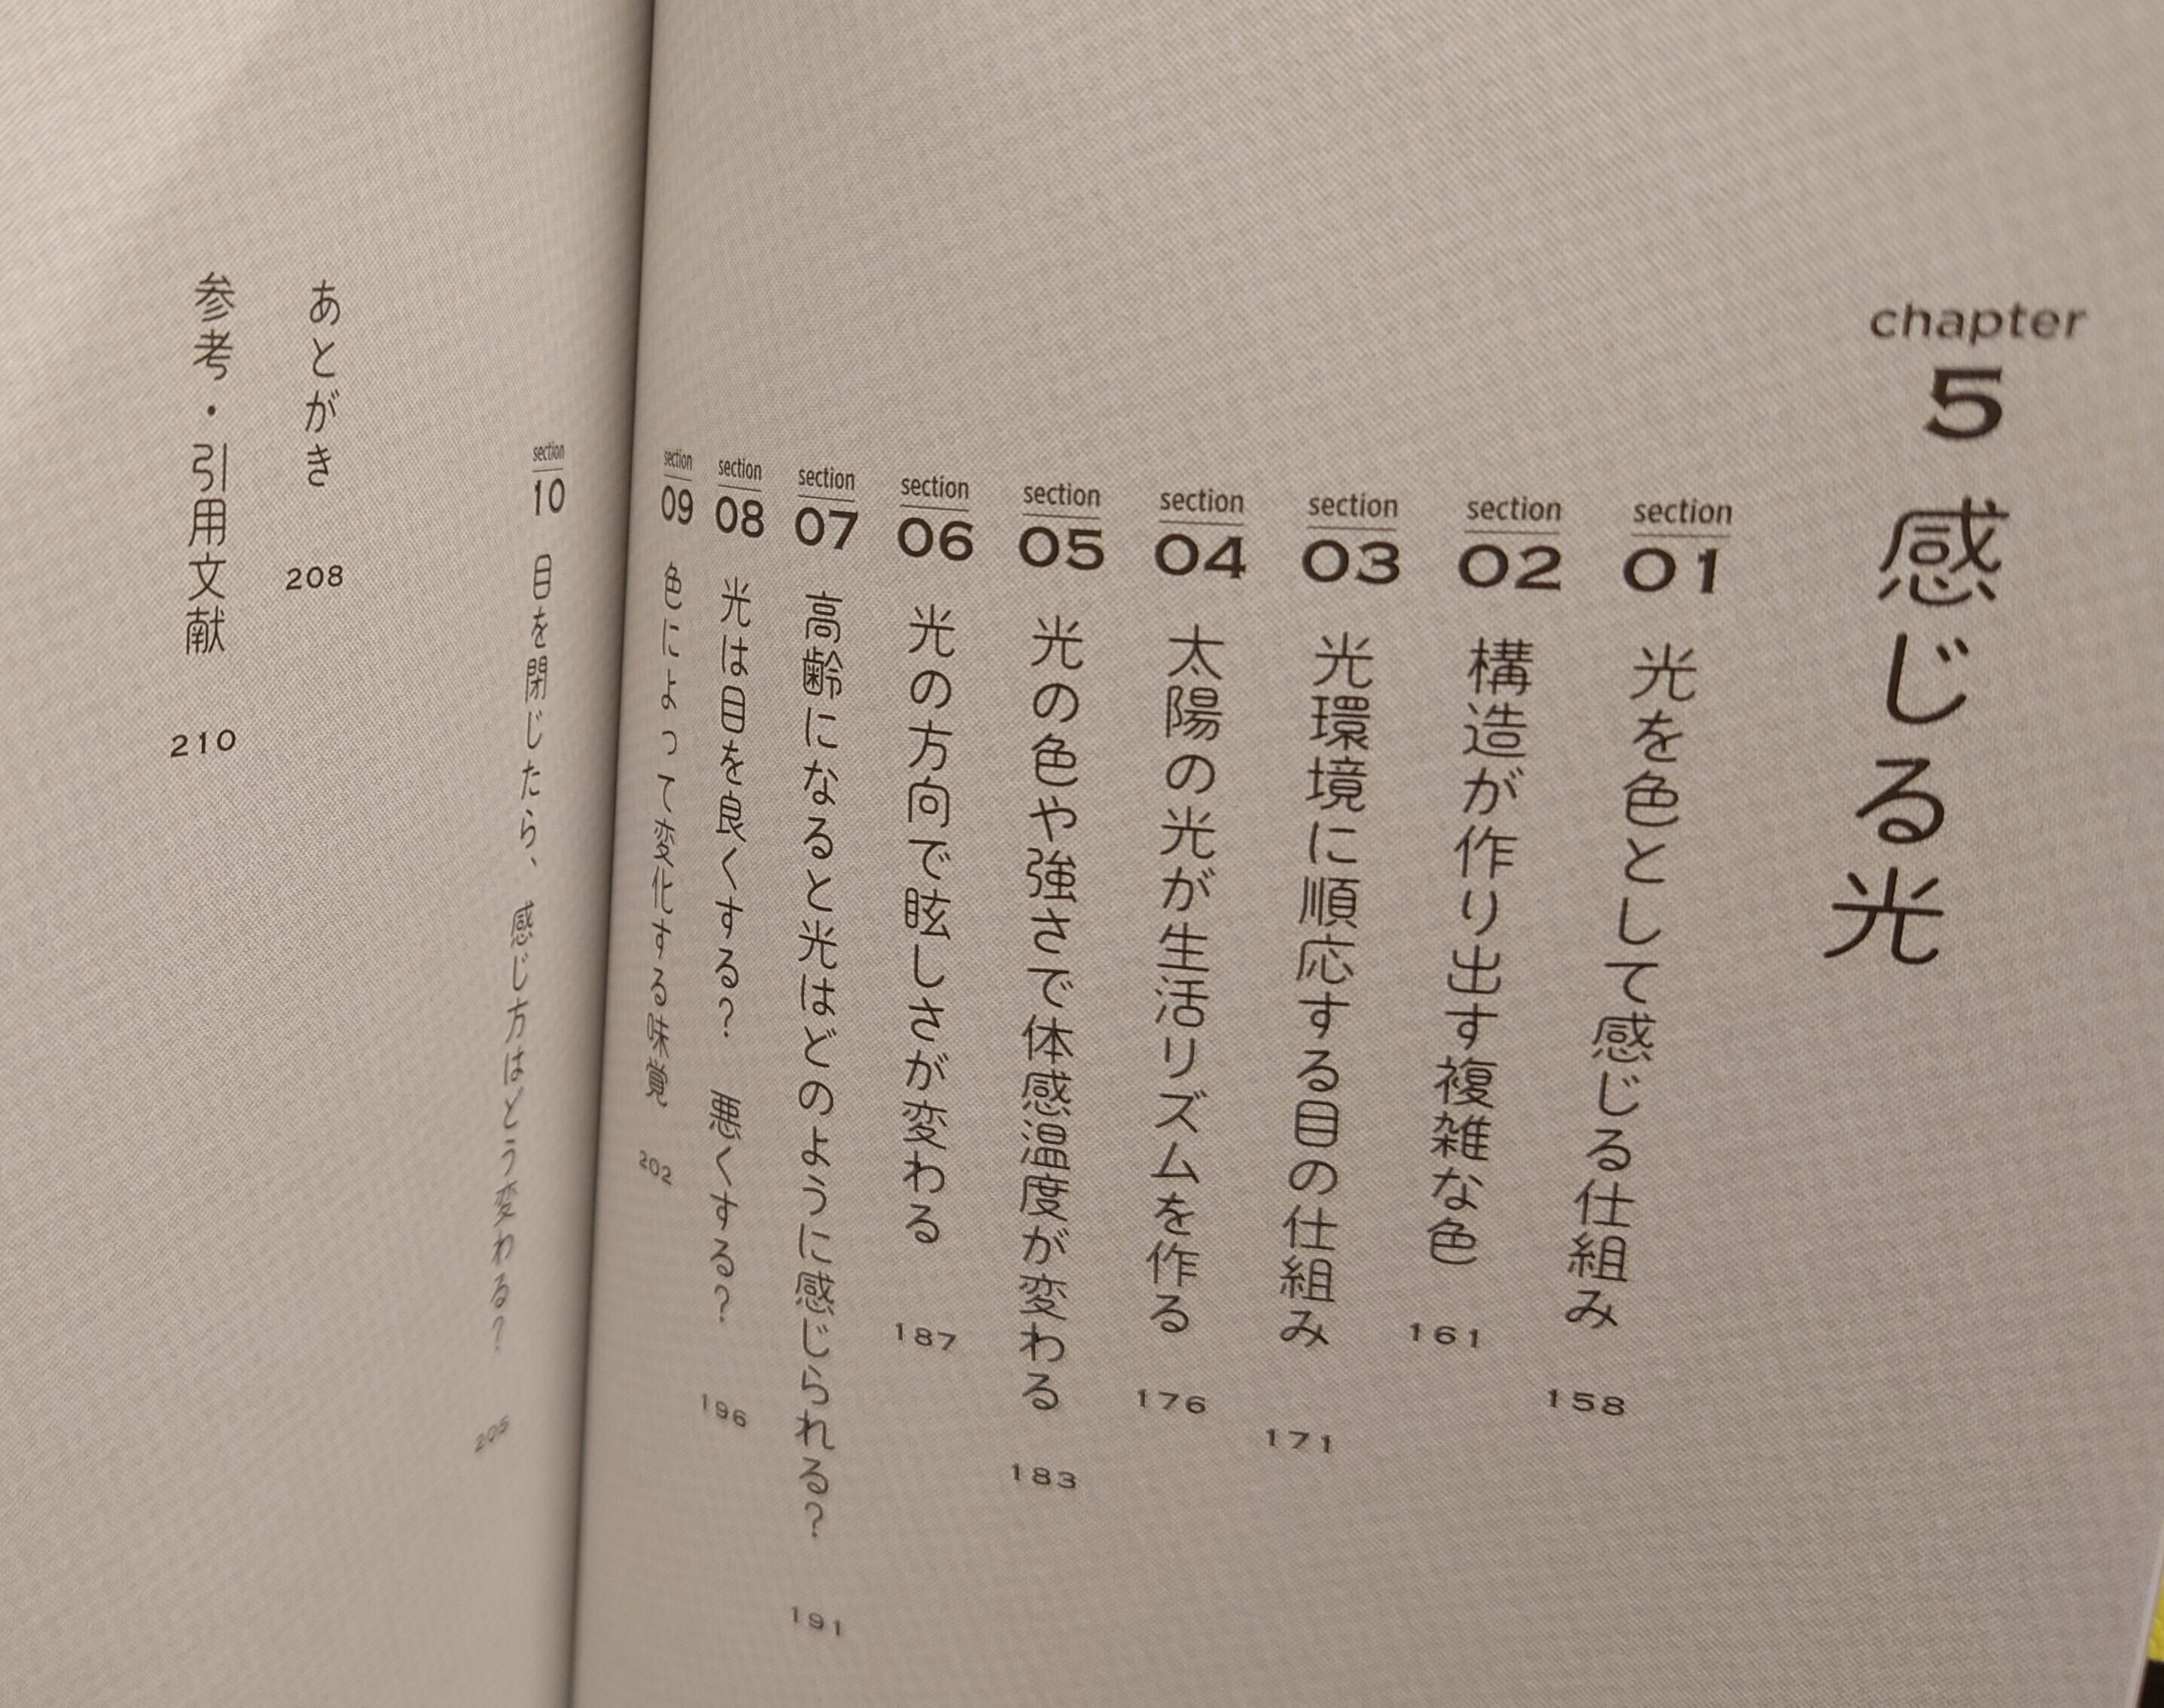 chapter
5 感じる光
section
01 光を色として感じる仕組み 158
section
02 構造が作り出す複雑な色 161
section
03 光環境に順応する目の仕組み 171
section
04 太陽の光が生活リズムを作る 176
section
05 光の色や強さで体感温度が変わる 183
section
06 光の方向で眩しさが変わる 187
section
07 高齢になると光はどのように感じられる? 191
section
08 光は目を良くする? 悪くする? 196
section
09 色によって変化する味覚 202
section
10 目を閉じたら、感じ方はどう変わる? 205
あとがき 208
参考・引用文献 210